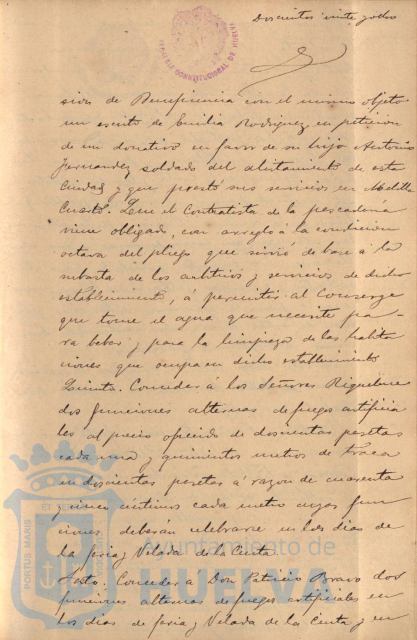 Doscientos veinte y ocho
ALCALDIA CONSTITUCIONAL DE HUELVA
sion de Beneficencia con el mismo objeto
un escrito de Emilia Rodriguez en peticion
de un donativo en favor de su hijo Antonio
Hernandez soldado del alistamiento de esta
Ciudad y que presta sus servicios en Melilla
Cuarto. Que el Contratista de la pescaderia
viene obligado, con arreglo á la condicion
octava del pliego que sirvió de base á la
subasta de los arbitrios y servicios de dicho
establecimiento, á permitir al Conserge
que tome el agua que necesite pa-
ra beber y para la limpieza de las habita
ciones que ocupa en dicho establecimiento
Quinto. Conceder á los Señores Riquelme
dos funciones alternas de fuegos artificia
les al precio ofrecido de doscientas pesetas
cada una y quinientos metros de traca
en doscientas pesetas á razon de cuarenta
y cinco céntimos cada metro cuyas fun
ciones deberán celebrarse en los dias de
la feria y Velada de la Cinta
Sexto. Conceder á Don Patricio Bravo dos
funciones alternas de fuegos artificiales en
los dias de feria y Velada de la Cinta y en
PORTUS MARIS
ET
Ayuntamiento de
HUELVA